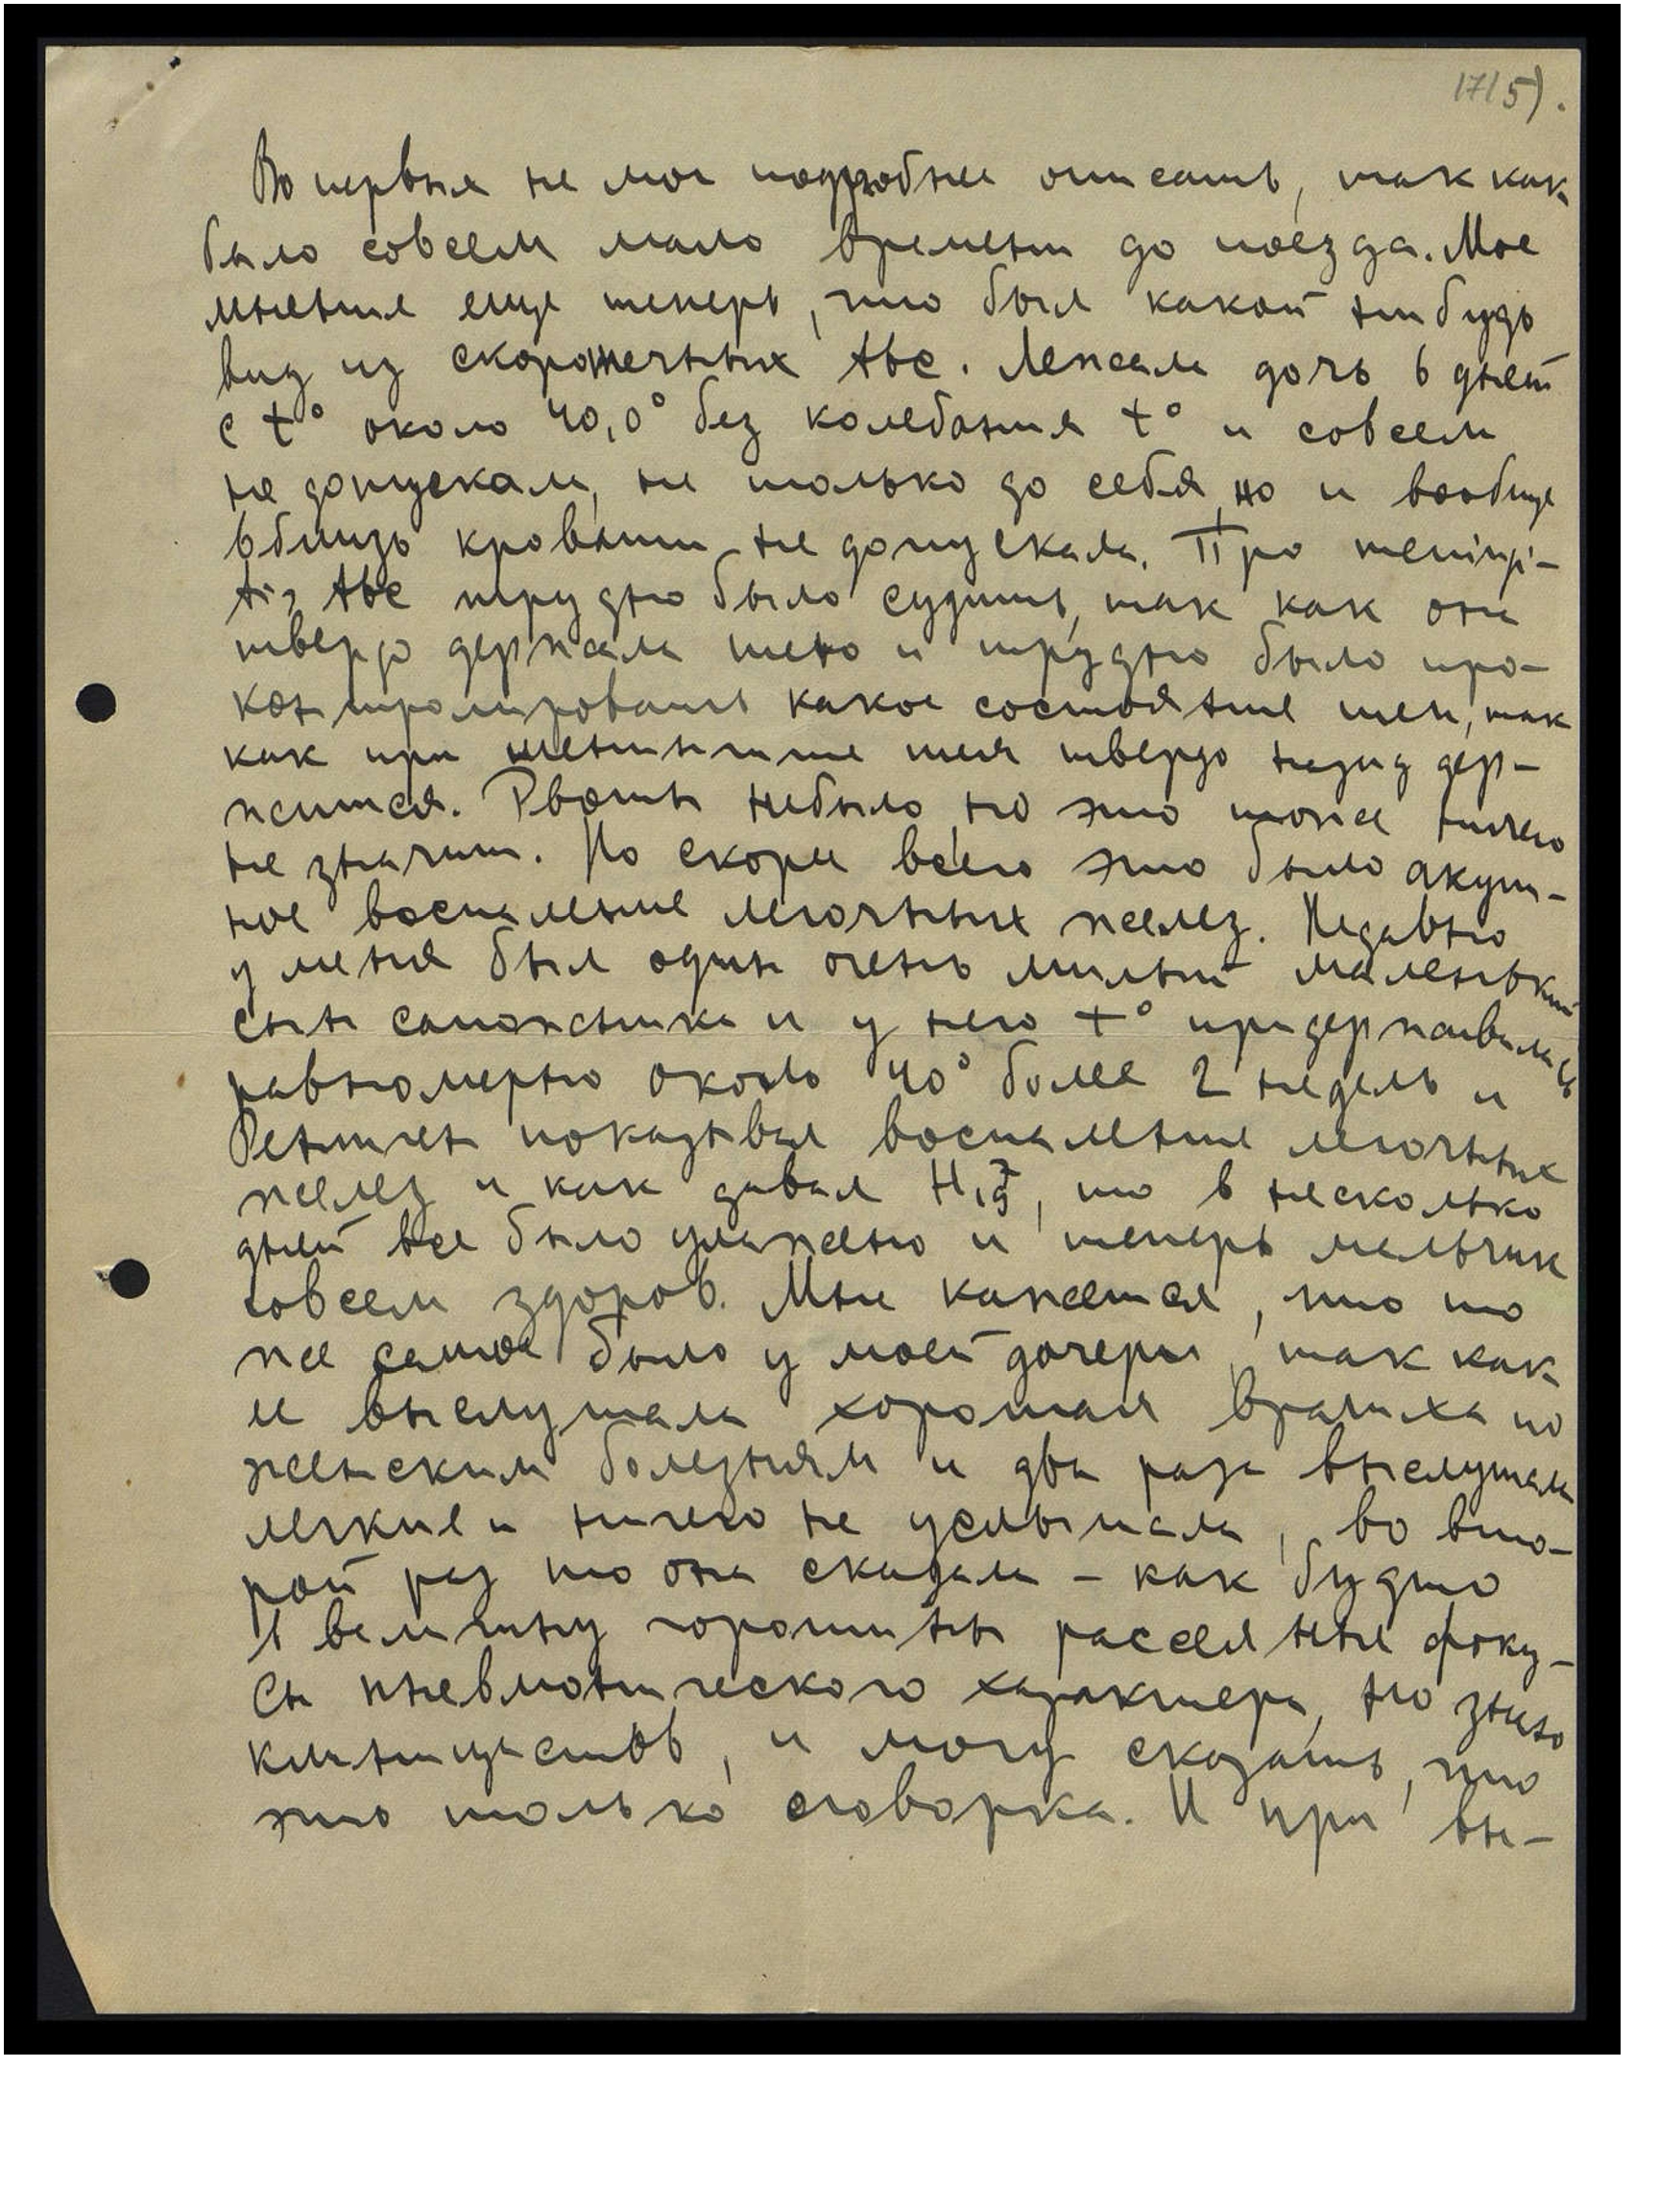 17/5).
Во первых не мог подробнее описать, так как
было совсем мало времени до поезда. Мое
мнение еще теперь, что был какой нибудь
вид из скоротечных tbc. Лежала дочь 6 дней
с t° около 40,0° без колебания t° и совсем
не допускала, не только до себя, но и вообще
вблизь кровати не допускала. Про meningi-
tis tbc трудно было судить, так как она
твердо держала шею и трудно было про-
контролировать какое состояние шеи, так
как при менингите шея твердо назад дер-
жится. Рвоты небыло, но это тоже ничего
не значит. Но скорее всего это было акут-
ное воспаление легочных желез. Недавно
у меня был один очень милый маленький
сын сапожника и у него t° придерживалась
равномерно около 40° более 2 недель и
Рентген показывал воспаление легочных
желез и как давал , то в несколько
дней все было улажено и теперь мальчик
совсем здоров. Мне кажется, что то
же самое было у моей дочери, так как
ее выслушала хорошая врачиха по
женским болезням и два раза выслушала
легкие и ничего не услышала, во вто-
рой раз то она сказала – как будто
в величину горошины рассеянные фоку-
сы пневмонического характера, но знаю
клиницистов, и могу сказать, что
это только оговорка. И при вы-